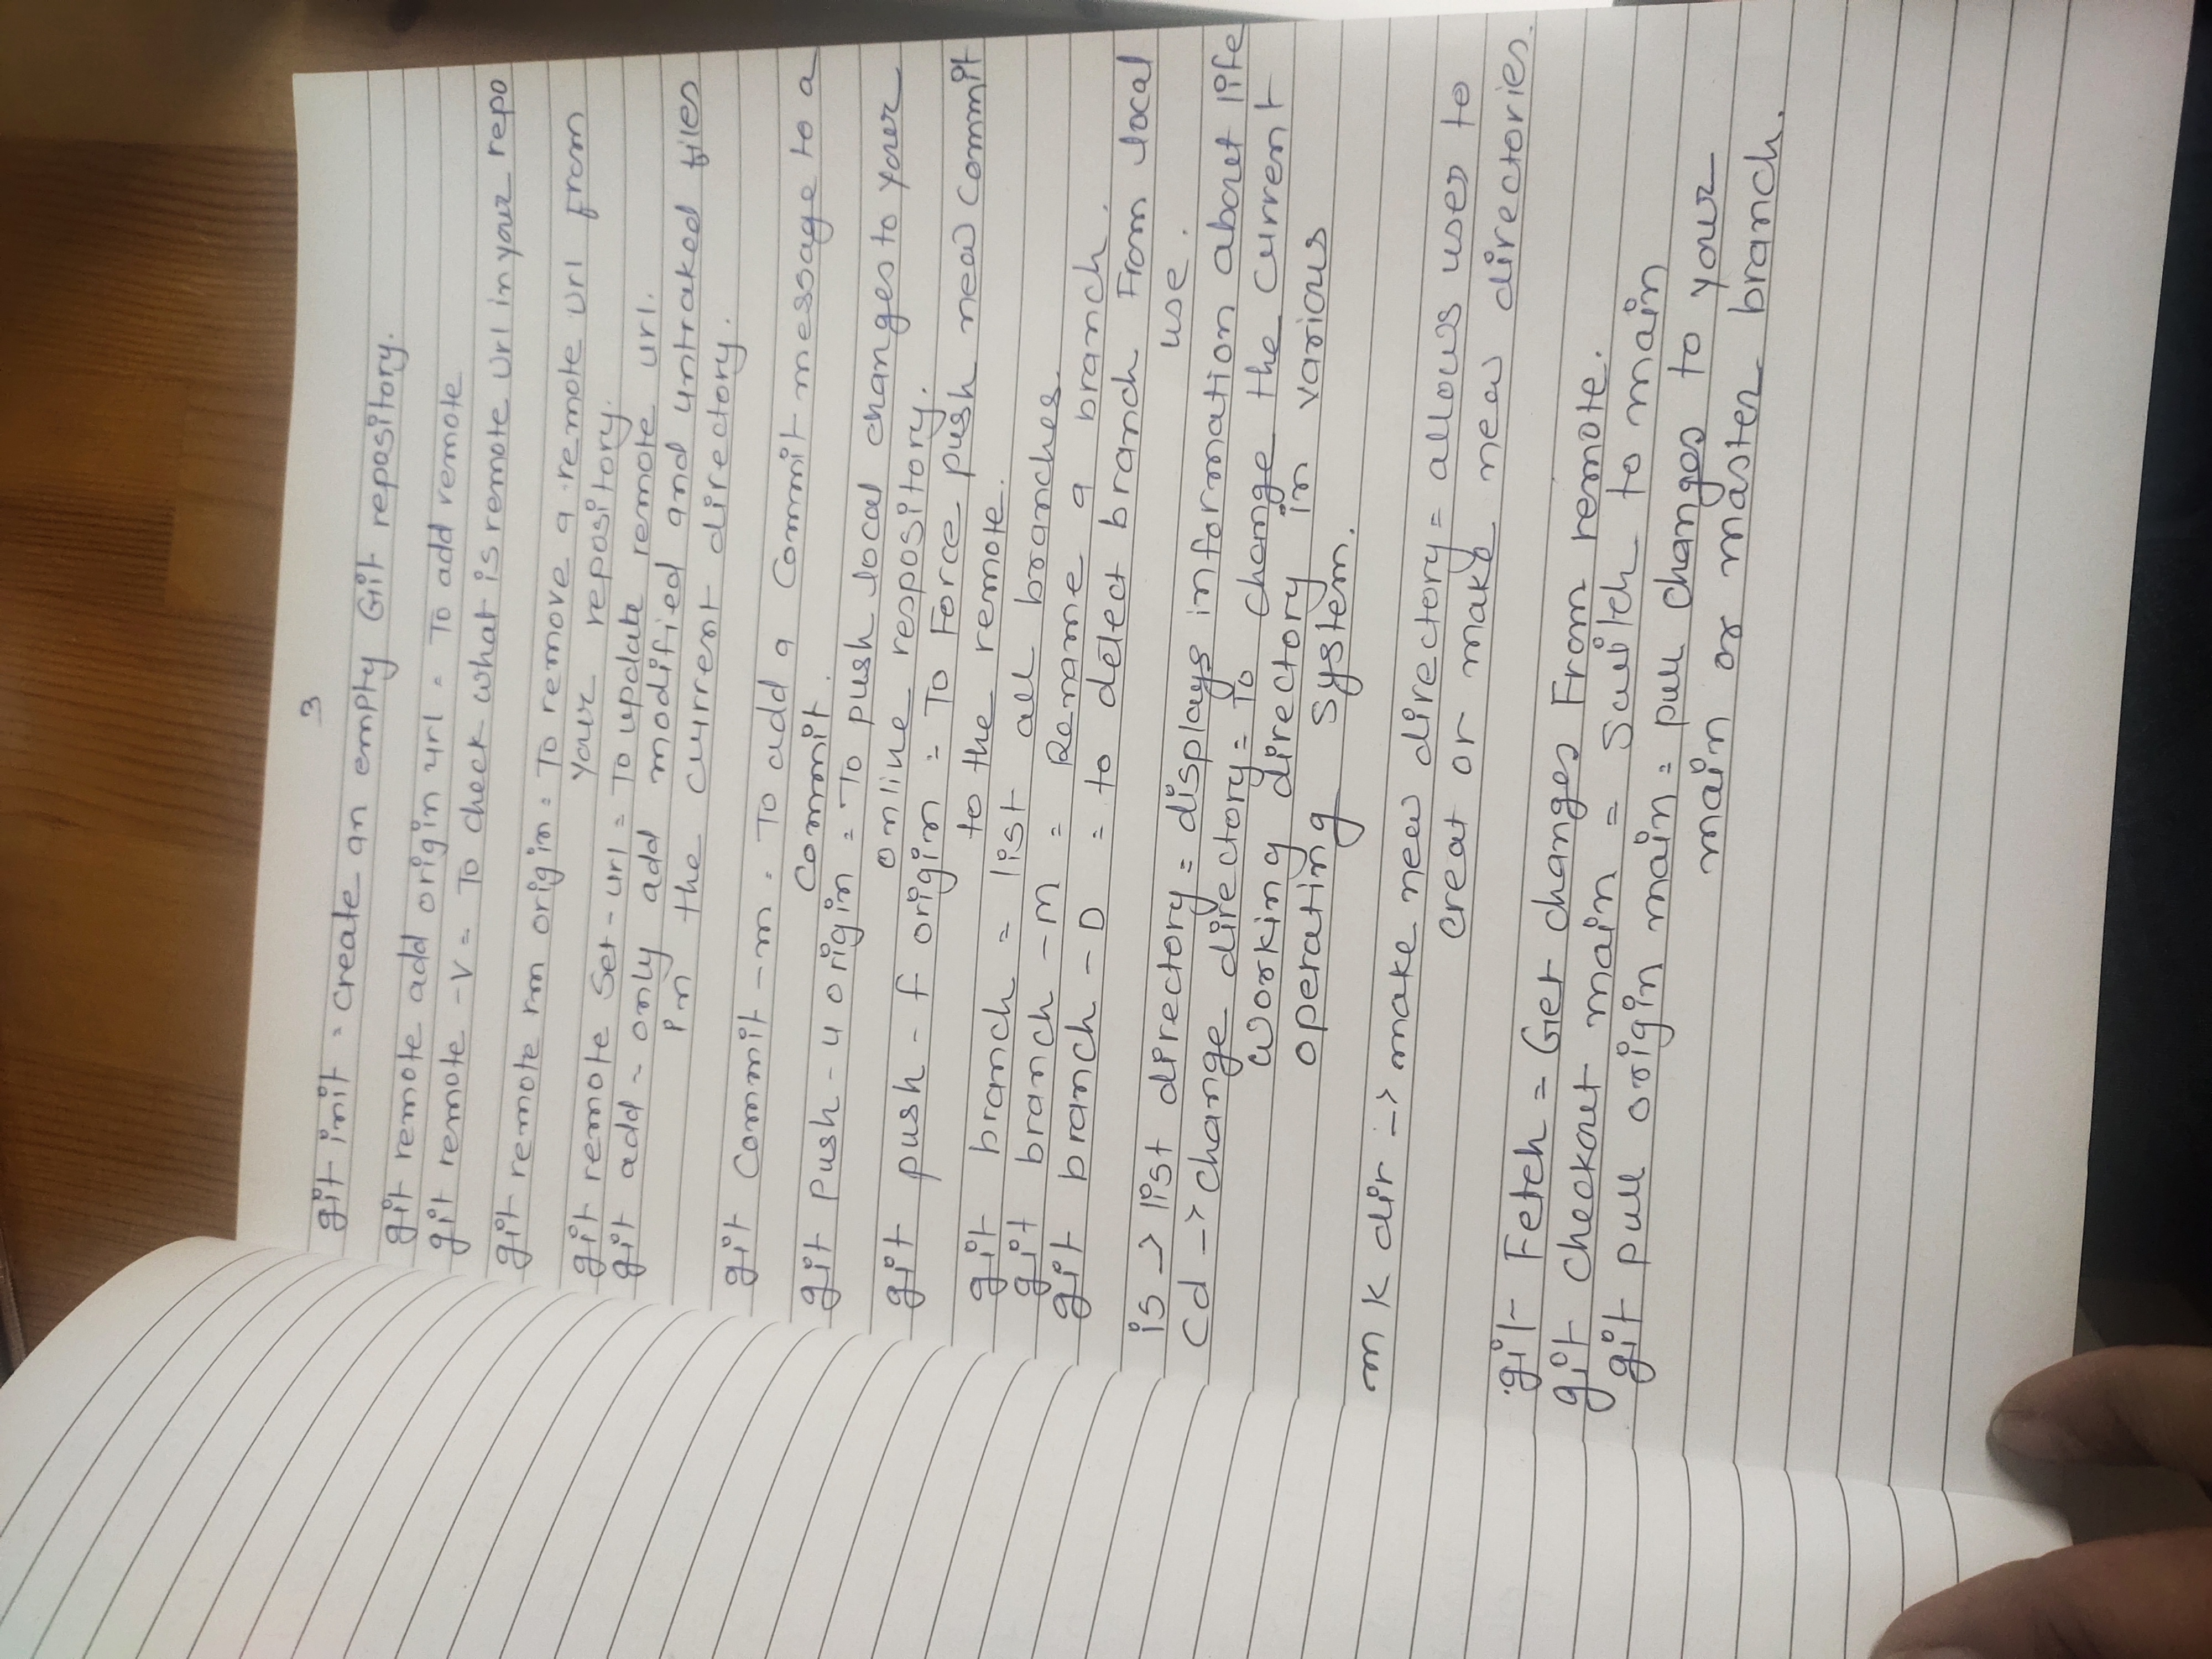 3
git init = create an empty Git repository.
git remote add origin url = To add remote
git remote -v = To check what is remote url in your repo
git remote rm origin = To remove a remote url from
your repository.
git remote Set-url = To update remote url.
git add ~ only add modified and untraked files
in the current directory.
git commit -m = To add a commit message to a
commit.
git push -u origin = To push local changes to your
online respository.
git push -f origin = To Force push new commit
to the remote.
git branch = list all branches.
git branch -m = Rename a branch.
git branch -D = to delect branch From local
use.
is -> list directory = displays information about life
Cd -> change directory = To change the current
working directory in various
operating system.
mk dir -> make new directory = allows uses to
creat or make new directories.
git Fetch = Get changes From remote.
git checkout main = switch to main
git pull origin main = pull changes to your
main or master branch.